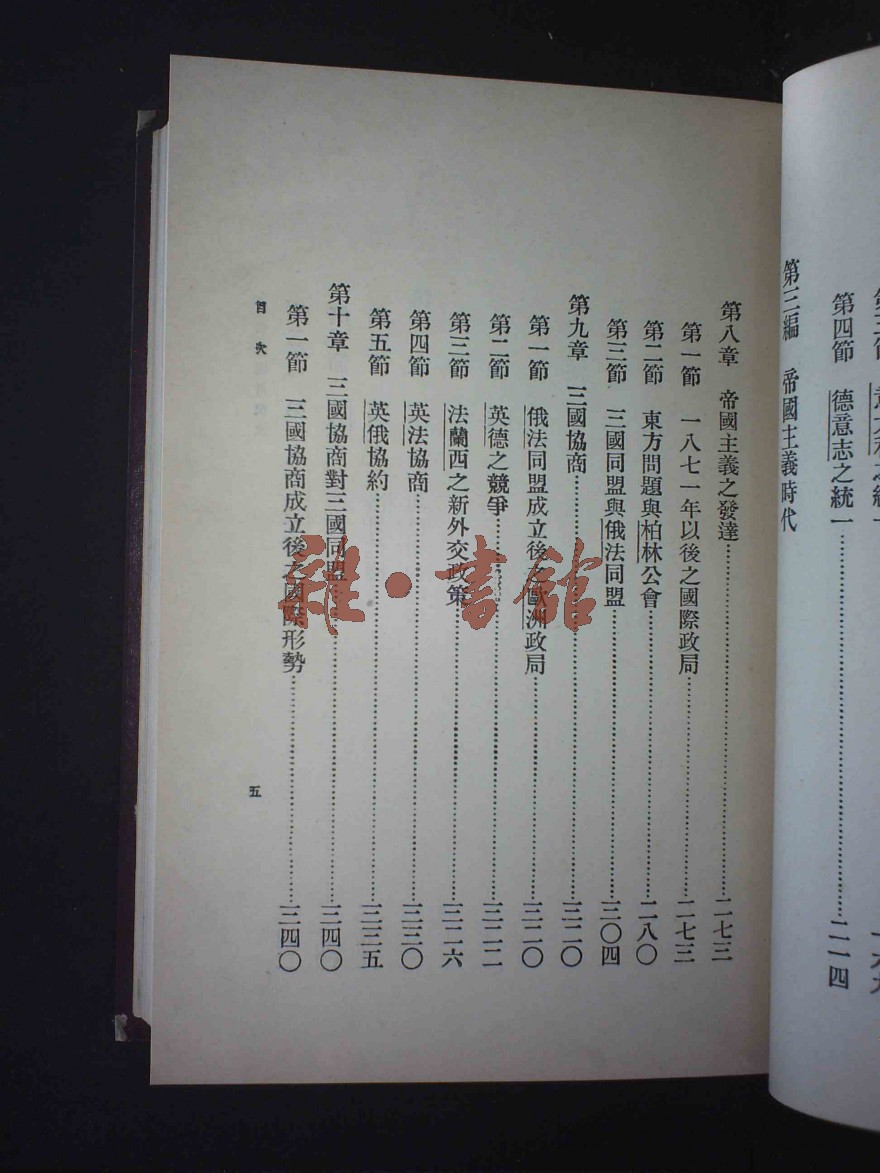 第四節　德意志之統一……二一四
第三編　帝國主義時代
第八章　帝國主義之發達……二七三
第一節　一八七一年以後之國際政局……二七三
第二節　東方問題與柏林公會……二八〇
第三節　三國同盟與俄法同盟……三〇四
第九章　三國協商……三二〇
第一節　俄法同盟成立後之歐洲政局……三二〇
第二節　英德之競爭……三二二
第三節　法蘭西之新外交政策……三二六
第四節　英法協商……三三〇
第五節　英俄協約……三三五
第十章　三國協商對三國同盟……三四〇
第一節　三國協商成立後之國際形勢……三四〇
目次
五
雜·書館